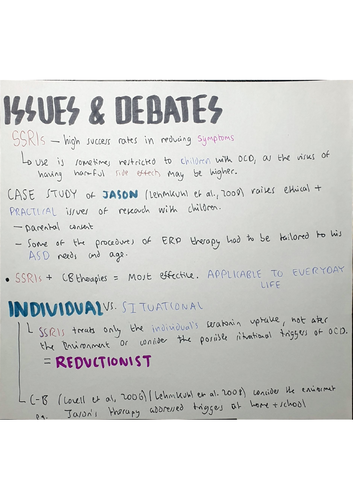 ISSUES & DEBATES
SSRIs – high success rates in reducing symptoms
↳ use is sometimes restricted to children with OCD, as the risks of
having harmful side effects may be higher.
CASE STUDY of JASON (Lehmkuhl et al., 2008) raises ethical +
PRACTICAL issues of research with children.
– parental consent
– Some of the procedures of ERP therapy had to be tailored to his
ASD needs and age.
• SSRIs + CB therapies = Most effective. APPLICABLE TO EVERYDAY
LIFE
INDIVIDUAL VS. SITUATIONAL
SSRIs treats only the individual's serotonin uptake, not
the environment or consider the possible situational triggers of OCD.
= REDUCTIONIST
C-B (Lovell et al, 2006)/Lehmkuhl et al. 2008) consider the environment
eg. Jason's therapy addressed triggers at home + school